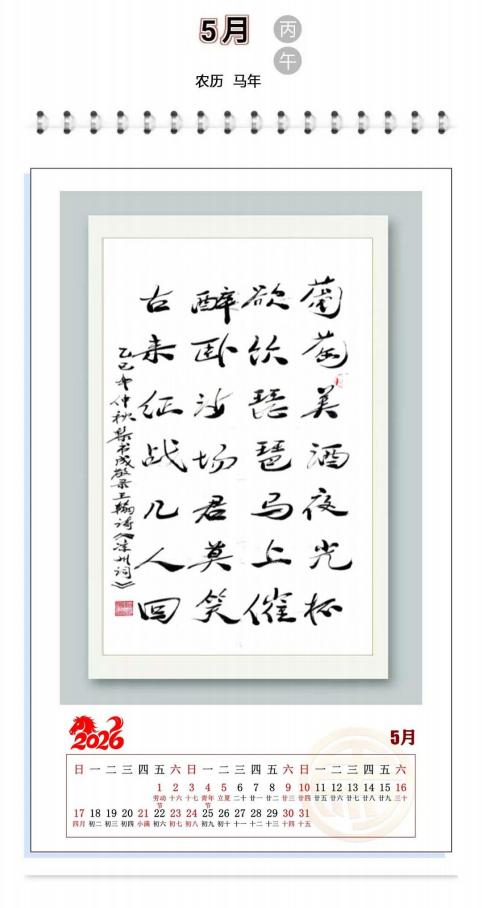 5月
丙
午
农历 马年
葡萄美酒夜光杯
欲饮琵琶马上催
醉卧沙场君莫笑
古来征战几人回
乙巳年仲秋书成敬录王翰诗《凉州词》
2026
5月
日 一 二 三 四 五 六 日 一 二 三 四 五 六 日 一 二 三 四 五 六
1 2 3 4 5 6 7 8 9 10 11 12 13 14 15 16
劳动节 十六 十七 青年节 立夏 二十 廿一 廿二 廿三 廿四 廿五 廿六 廿七 廿八 廿九 三十
17 18 19 20 21 22 23 24 25 26 27 28 29 30 31
四月 初二 初三 初四 小满 初六 初七 初八 初九 初十 十一 十二 十三 十四 十五